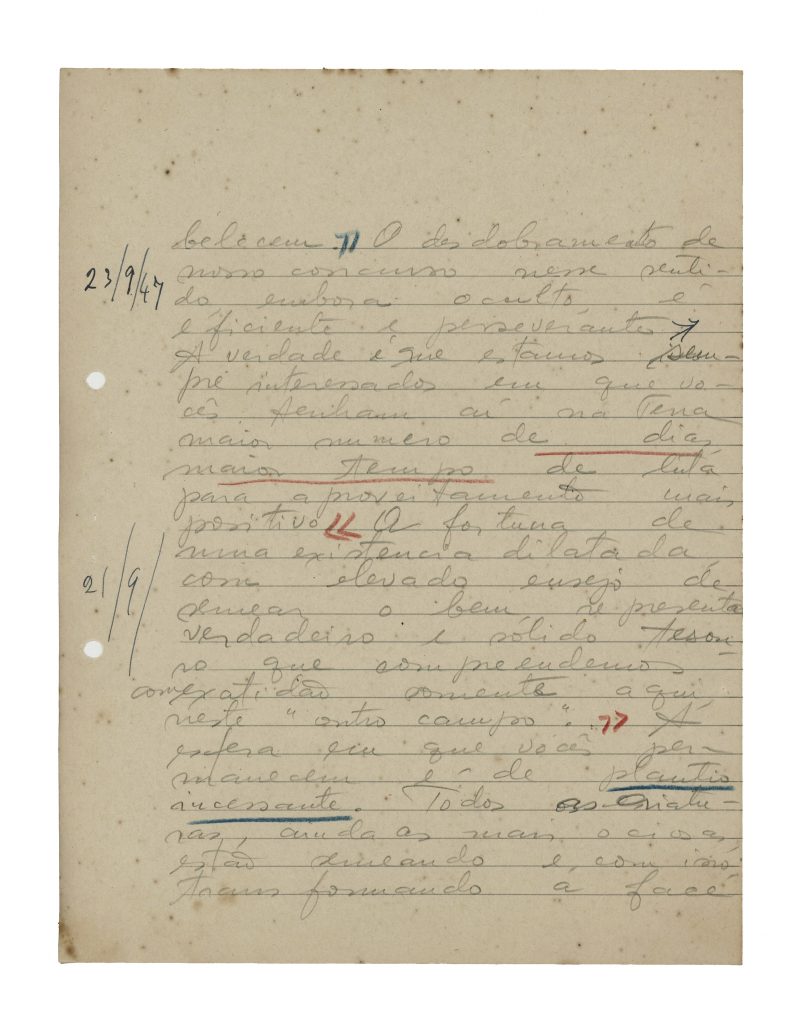 belecem. » O desdobramento de
23/9/47
nosso concurso nesse senti-
do embora oculto é
eficiente e perseverante.
A verdade é que estamos sem-
pre interessados em que vo-
cês tenham aí na Terra
maior numero de dias
maior tempo de luta
para aproveitamento mais
positivo « A fortuna de
uma existencia dilatada
21/9/
com elevado ensejo de
semear o bem representa
verdadeiro e sólido tesou-
ro que compreendemos
com exatidão somente aqui
neste "outro campo". » A
esfera em que vocês per-
manecem é de plantio
incessante. Todos as criatu-
ras, ainda as mais ociosas
estão semeando e, com isso
transformando a face